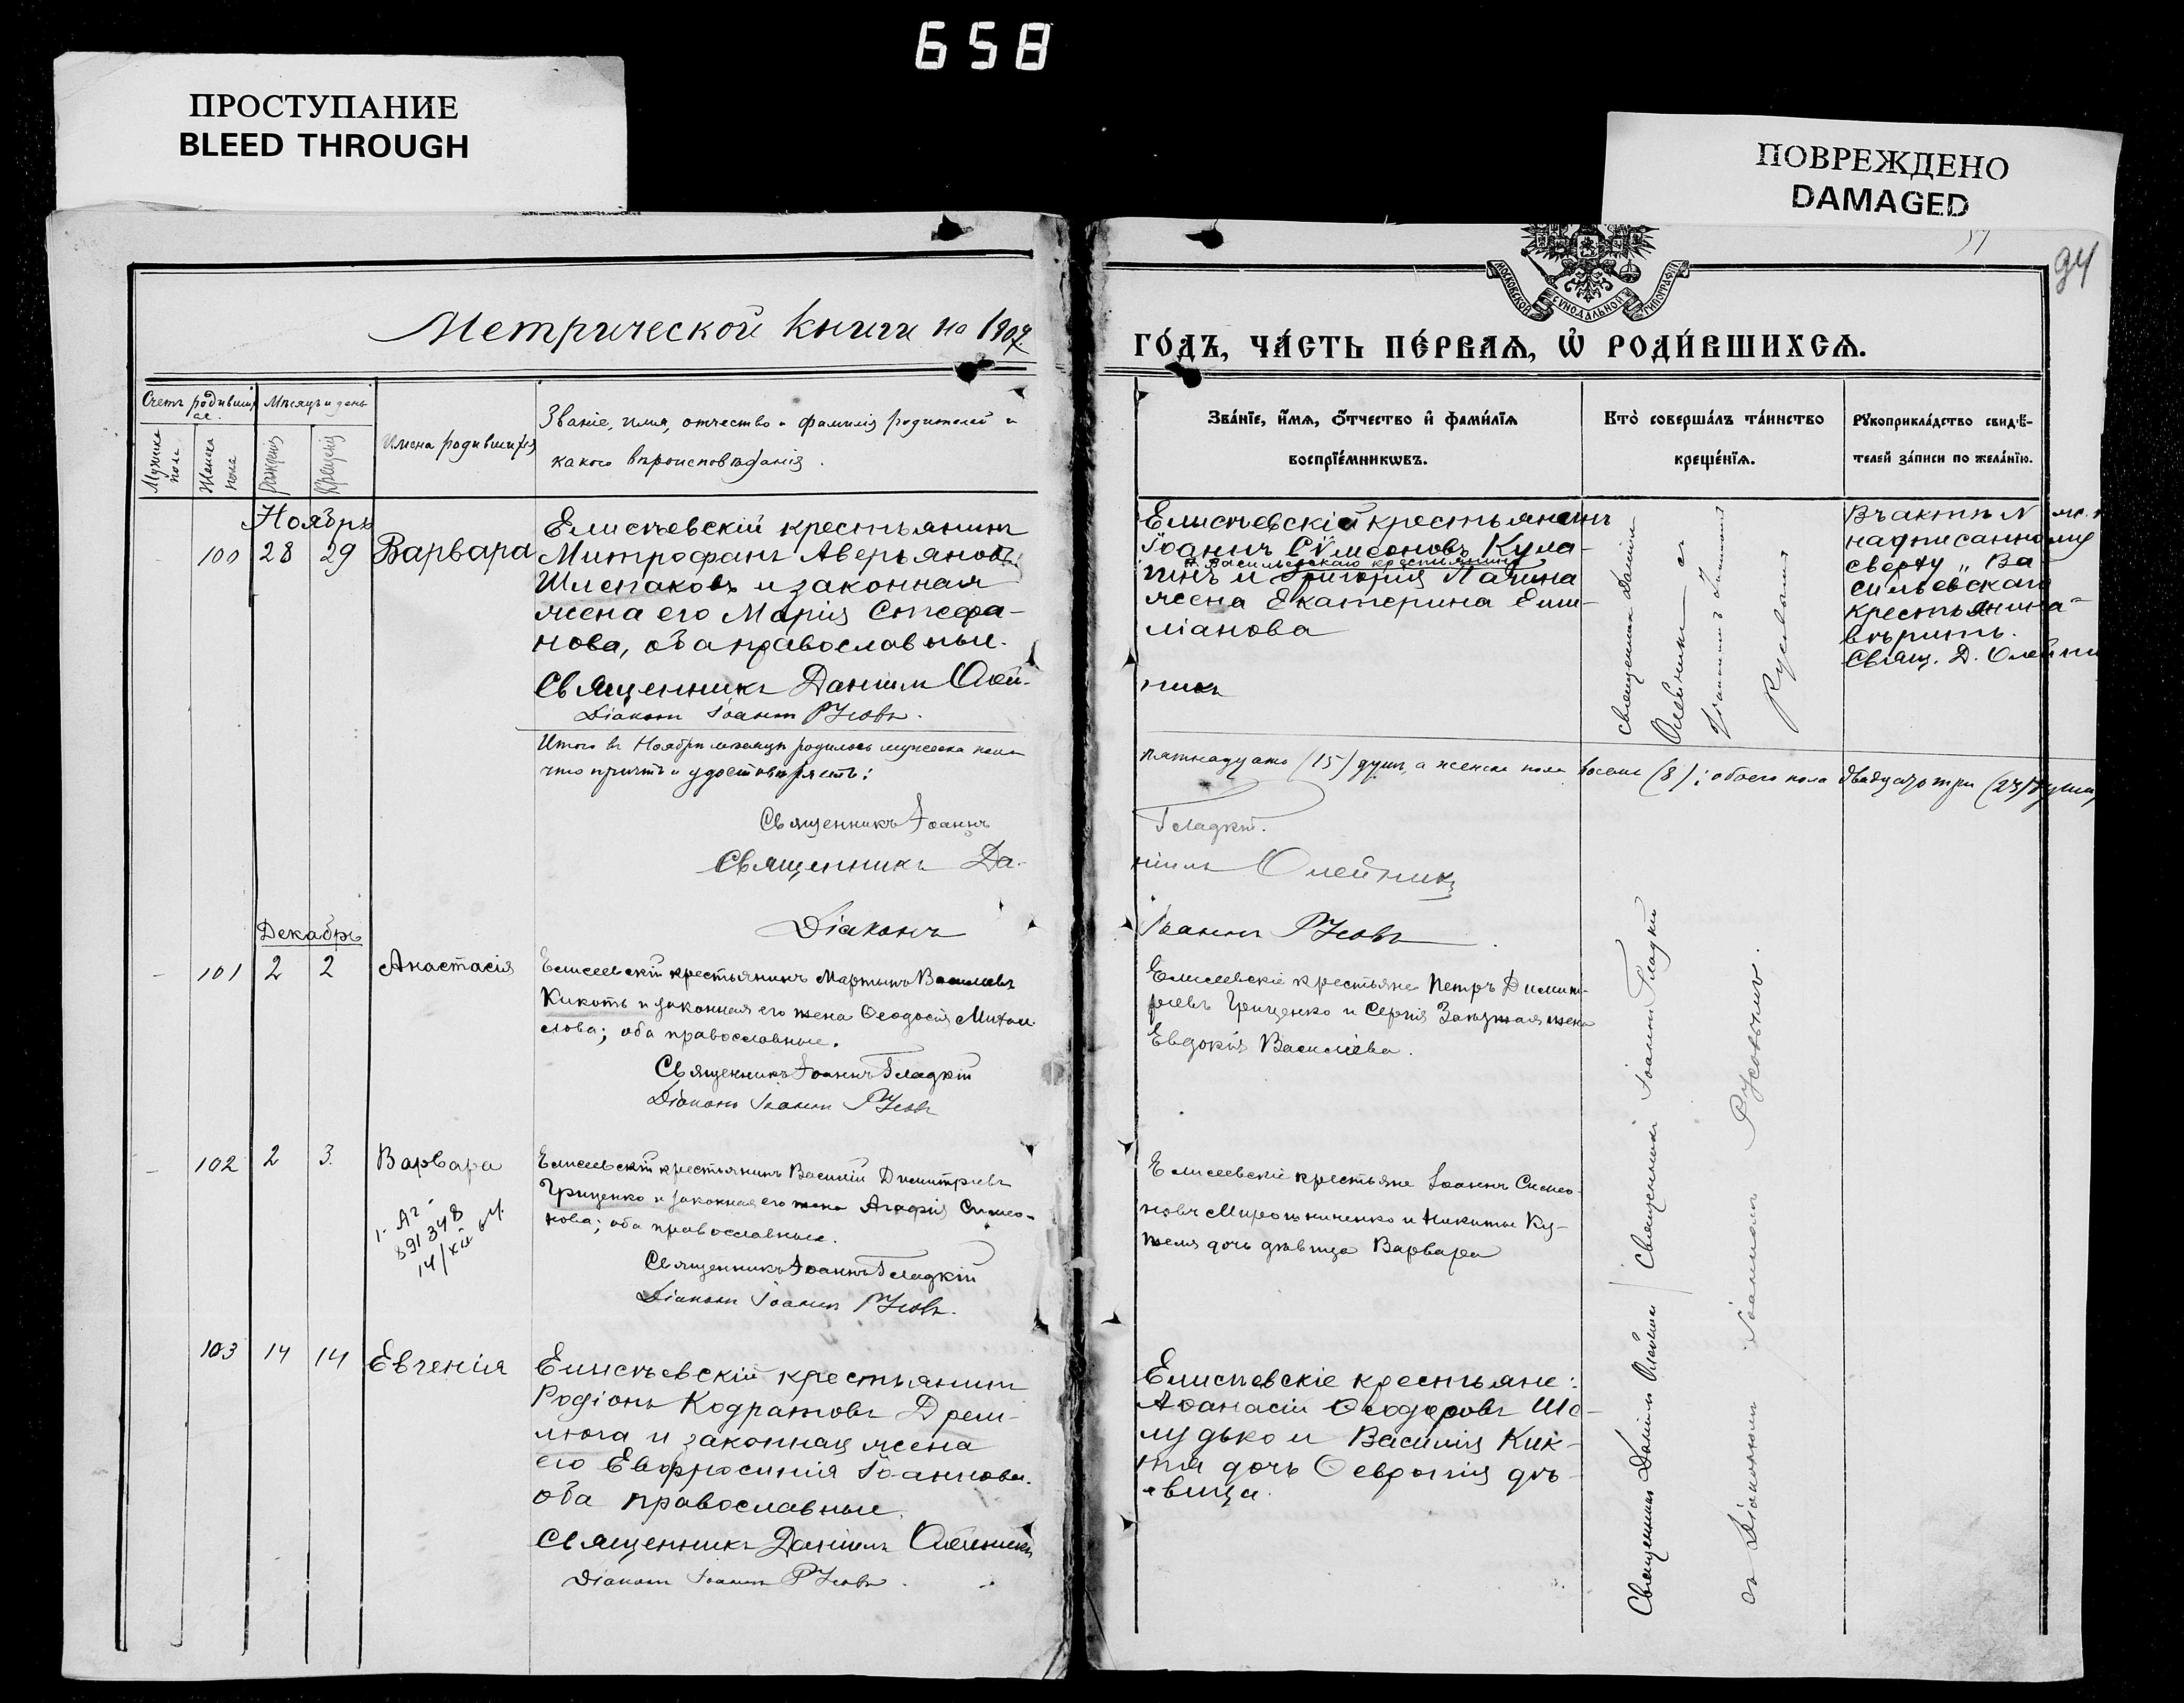 658
ПРОСТУПАНИЕ
BLEED THROUGH
ПОВРЕЖДЕНО
DAMAGED
94
МОСКОВСКОЙ СѴНОДАЛЬНОЙ ТИПОГРАФІИ
Метрической книги на 190
ГО́ДЪ, ЧА́СТЬ ПЕ́РВАѦ, Ѡ҆ РОДИ́ВШИХСѦ.
Счетъ родивших
ся.
Мѣсяцъ и день
Мужска пола
Женска пола
рожденія
крещенія
Имена родившихся
Званіе, имя, отчество и фамилія родителей и
какого вѣроисповѣданія.
Зва́нїе, и҆́мѧ, ѻ҆́тчество и҆ фами́лїѧ
воспрїе́мникѡвъ.
Кто̀ соверша́лъ та́инство
креще́нїѧ.
Рꙋкоприкла́дство свидѣ́-
телей за́писи по жела́нїю.
Ноябрь
100 28 29 Варвара
Елисѣевскій крестьянинъ
Митрофанъ Аверьяновъ
Шлепаковъ и законная
жена его Марія Стефа-
нова, оба православные.
Священникъ Даніилъ Олей-
никъ
Діаконъ Іоаннъ Русовъ.
Елисѣевскій крестьянинъ
Іоаннъ Сѵмеоновъ Кула-
и Васильевскаго крестьянина
пинъ и Григорія Лагина
жена Екатерина Еми-
ліанова
священник Даніилъ
Олейникъ съ
Діакономъ Іоанномъ
Русовымъ
Въ актѣ N
надписанному
сверху „Ва-
сильевскаго
крестьянина"
вѣрить.
Свящ. Д. Олейни
Итого въ Ноябрѣ мѣсяцѣ родилось мужеска пола пятнадцать (15) душъ, а женска пола восемь (8); обоего пола двадцать три (23) души,
что причтъ и удостовѣряетъ:
Священникъ Іоаннъ Гладкій.
Священникъ Даніилъ Олейникъ
Діаконъ Іоаннъ Русовъ
Декабрь
101 2 2 Анастасія
Елисеевскій крестьянинъ Мартынъ Васильевъ
Кикоть и законная его жена Ѳеодосія Михаи
лова; оба православные.
Священникъ Іоаннъ Гладкій
Діаконъ Іоаннъ Русовъ
Елисеевскіе крестьяне Петръ Димит-
ріевъ Гриценко и Сергія жена
Евдокія Василіева.
102 2 3. Варвара
891348
Елисеевскій крестьянинъ Василій Димитріевъ
Гриценко и законная его жена Агафія Симео-
нова; оба православные.
Священникъ Іоаннъ Гладкій
Діаконъ Іоаннъ Русовъ.
Елисеевскіе крестьяне Іоаннъ Симео-
новъ Мирошниченко и Никиты Ку-
желя дочь дѣвица Варвара
Священникъ Іоаннъ Гладкій
103 14 14 Евгенія
Елисѣевскій крестьянинъ
Родіонъ Кодратовъ Дрем-
люга и законная жена
его Евфросинія Іоаннова.
оба православные.
Священникъ Даніилъ Олейникъ
Діаконъ Іоаннъ Русовъ.
Елисѣевскіе крестьяне:
Аѳанасій Ѳеодоровъ Ше-
лудько и Василія Кик-
тя дочь Ѳевронія дѣ-
вица.
Священникъ Даніилъ Олейникъ
съ Діакономъ Іоанномъ Русовымъ.